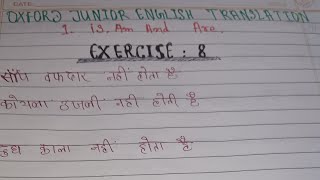 OXFORD JUNIOR ENGLISH TRANSLATION
1. is, Am And Are.
EXERCISE : 8
साँप वफादार नहीं होता है
कोयला उजली नहीं होती है
दुध काला नहीं होता है